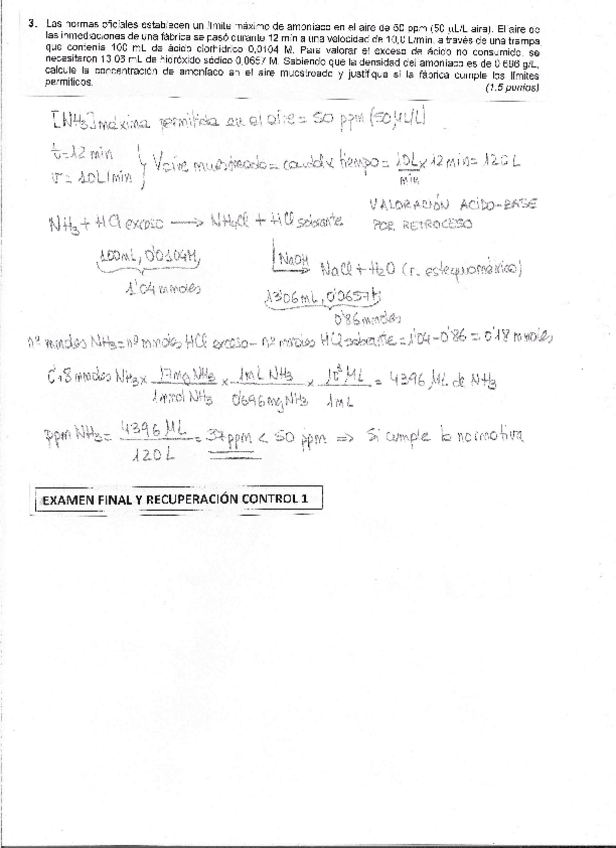 3. Las normas oficiales establecen un límite máximo de amoniaco en el aire de 50 ppm (50 µL/L aire). El aire de
las inmediaciones de una fábrica se pasó durante 12 min a una velocidad de 10,0 L/min, a través de una trampa
que contenía 100 mL de ácido clorhídrico 0,0104 M. Para valorar el exceso de ácido no consumido, se
necesitaron 13.06 mL de hidróxido sódico 0,0657 M. Sabiendo que la densidad del amoniaco es de 0.696 g/L,
calcule la concentración de amoníaco en el aire muestreado y justifique si la fábrica cumple los límites
permitidos. (1.5 puntos)
[NH3] máxima permitida en el aire = 50 ppm (50 µL/L)
t=12 min
v = 10L/min } Vaire muestreado = caudal x tiempo = 10L/min x 12 min = 120 L
VALORACIÓN ACIDO-BASE
POR RETROCESO
NH3 + HCl exceso → NH4Cl + HCl sobrante
100mL, 0'0104M,
1'04 mmoles
NaOH → NaCl + H2O (r. estequiométrica)
13'06mL, 0'0657M
0'86 mmoles
nº mmoles NH3 = nº mmoles HCl exceso - nº mmoles HCl sobrante = 1'04 - 0'86 = 0'18 mmoles
0'18 mmoles NH3 x 17mg NH3/1mmol NH3 x 1mL NH3/0'696mg NH3 x 10³ µL/1mL = 4396 µL de NH3
ppm NH3 = 4396 µL/120 L = 37ppm < 50 ppm ⇒ Si cumple la normativa
EXAMEN FINAL Y RECUPERACIÓN CONTROL 1